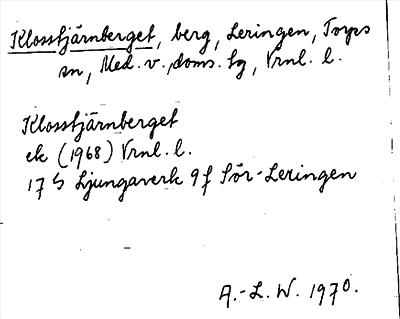 Klosstjärnberget, berg, Leringen, Torps
sn, Med. v. doms. tg, Vrnl. l.
Klosstjärnberget
ek (1968) Vrnl. l.
17 G Ljungaverk 9 f Sör-Leringen
A.-L. W. 1970.